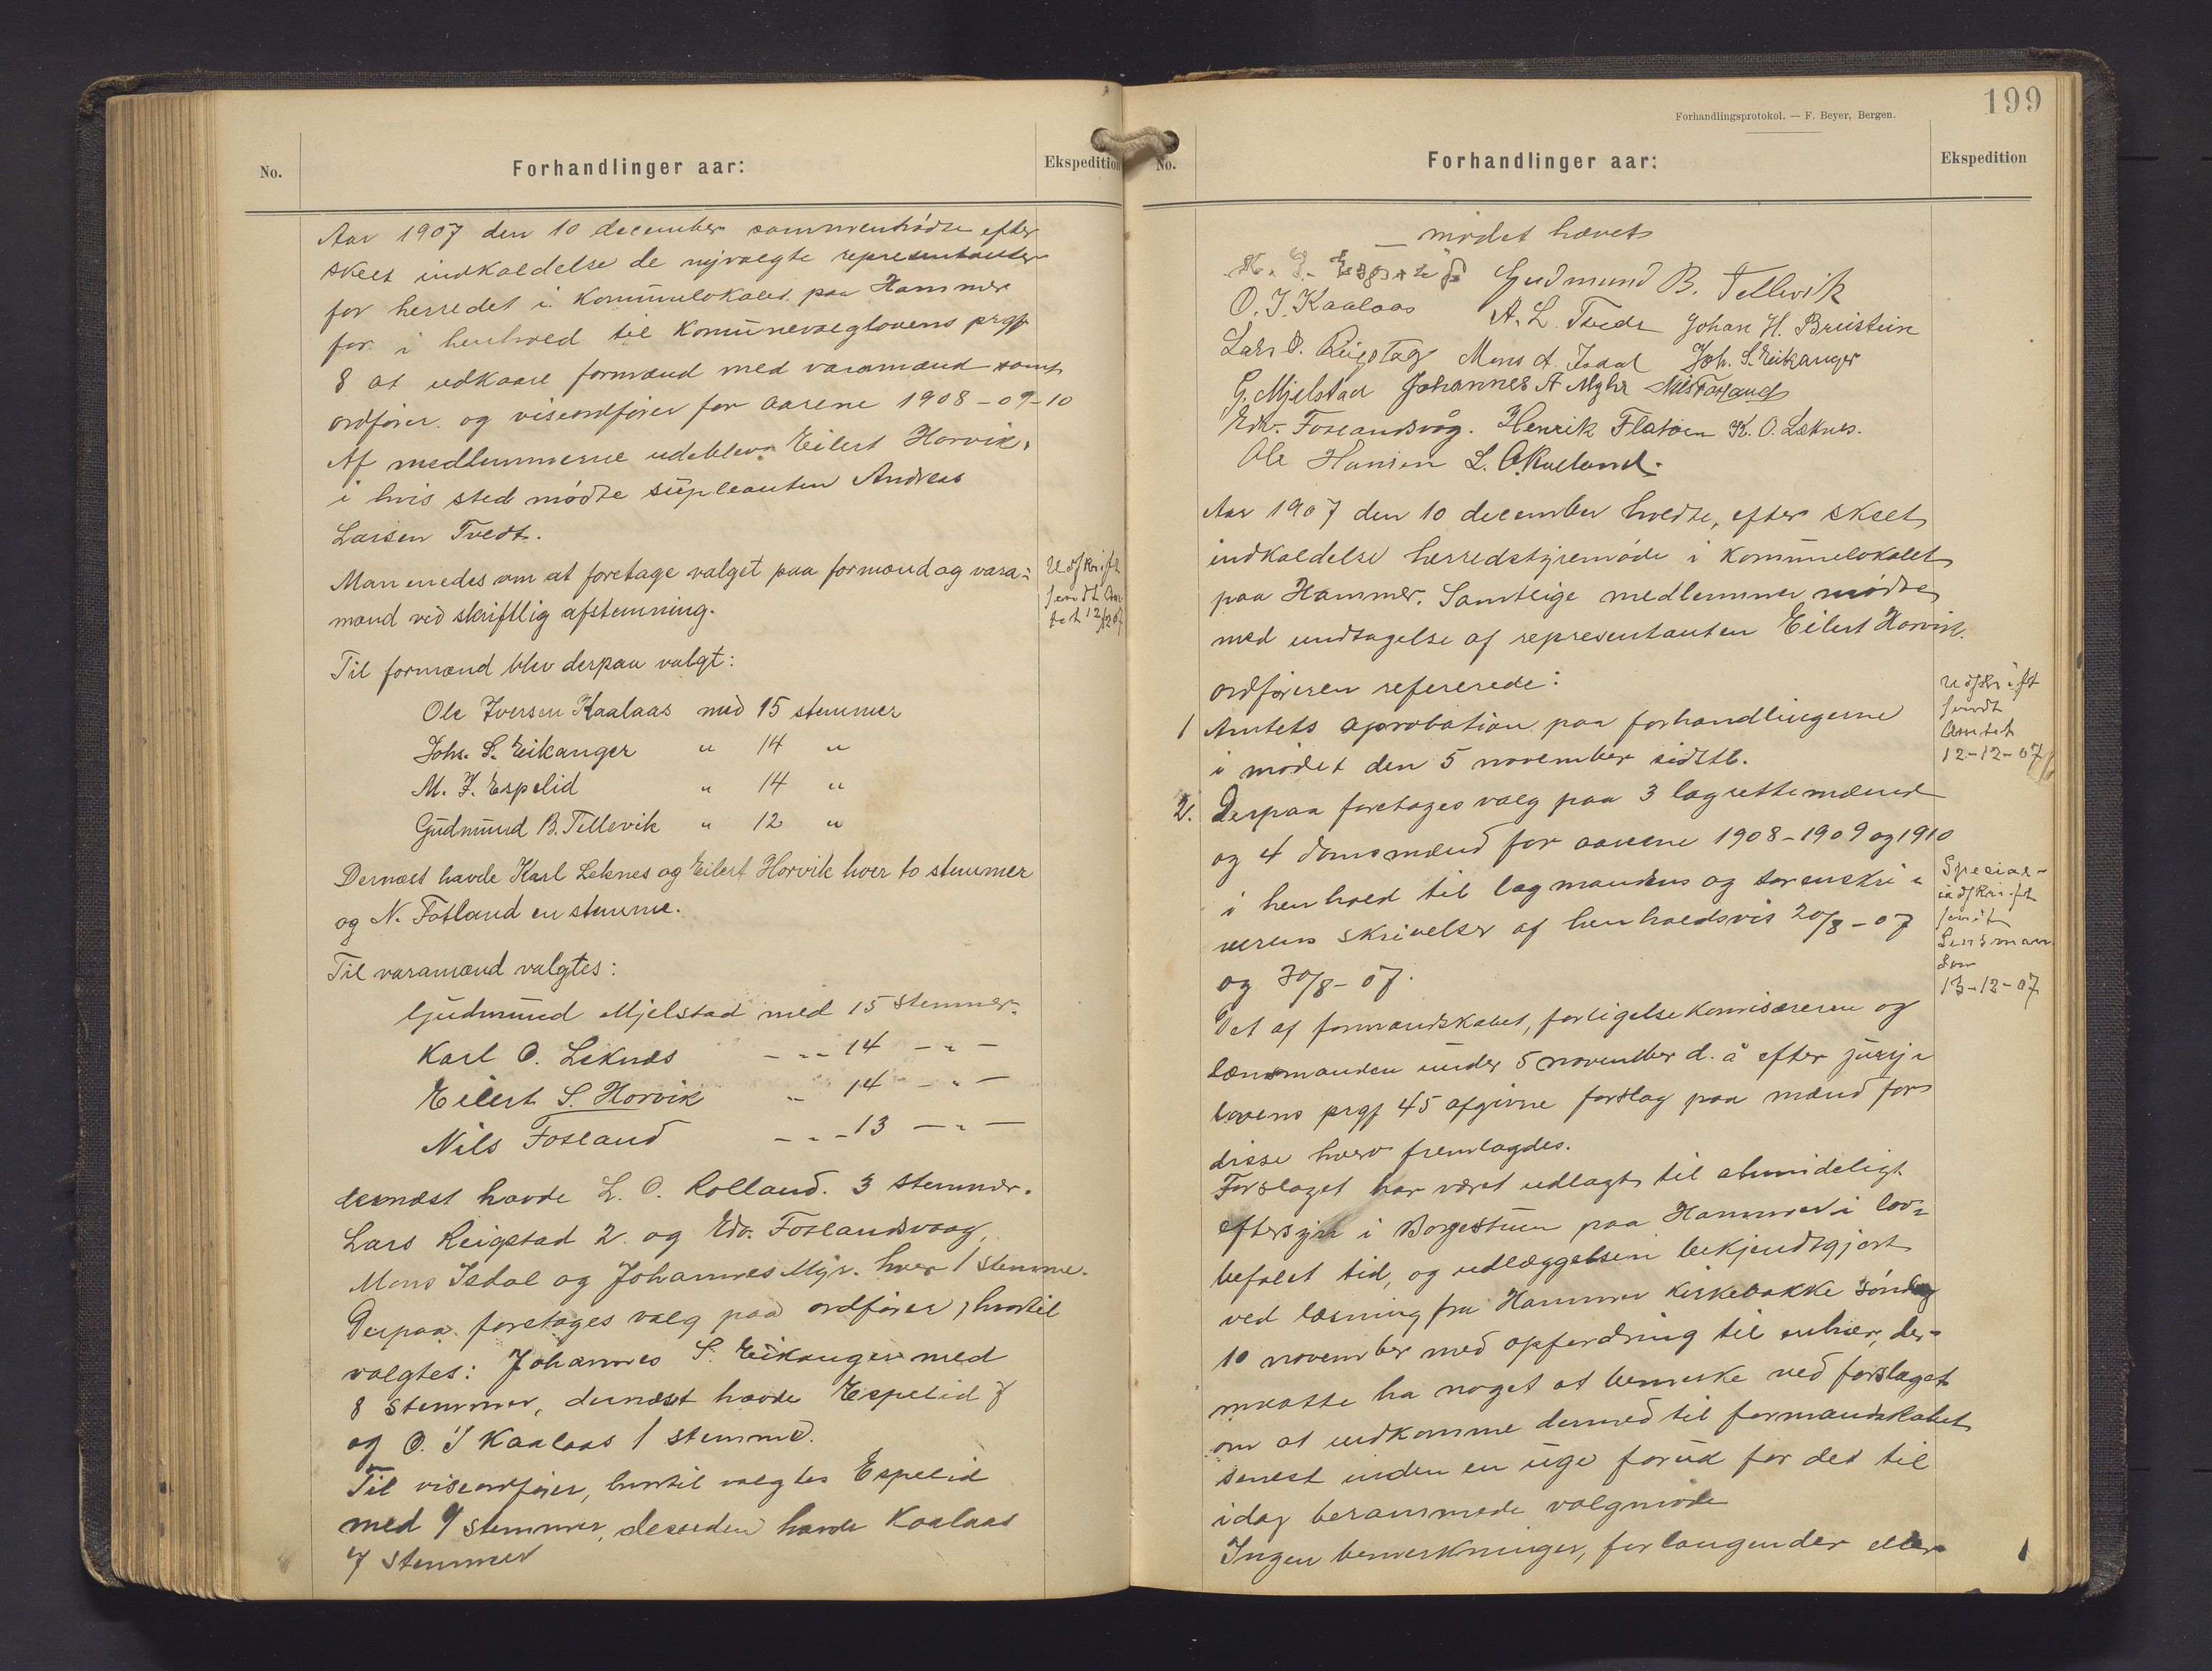 No.
Forhandlinger aar:
Ekspedition
Aar 1907 den 10 december sammentrådte efter
skeet indkaldelse de nyvalgte representanter
for herredet i Kommunelokalet paa Hammer
for i henhold til Komünevalglovens prgf
8 at udkaare formænd med varamænd samt
ordfører og viseordfører for aarene 1908-09-10
Af medlemmerne udeblev Eilert Horvik,
i hvis sted mødte süpleanten Andreas
Larsen Tvedt.
Man enedes om at foretage valget paa formænd og vara-
mænd ved skriftlig afstemning.
Udskrift
sendt Am-
tet 12/12 07
Til formænd blev derpaa valgt:
Ole Iversen Kaalaas med 15 stemmer
Johs. S. Eikanger " 14 "
M. J. Espelid " 14 "
Güdmünd B. Tellevik " 12 "
Dernæst havde Karl Leknes og Eilert Horvik hver to stemmer
og N. Fotland en stemme.
Til varamænd valgtes:
Güdmünd Mjelstad med 15 stemmer.
Karl O. Leknes - " - 14 - " -
Eilert S. Horvik " 14 - " -
Nils Fosland - " - 13 - " -
dernæst havde L. O. Rolland. 3 stemmer.
Lars Reigstad 2 og Edv. Foslandsvaag,
Mons Isdal og Johannes Myr. hver 1 stemme.
Derpaa foretages valg paa ordfører, hvortil
valgtes: Johannes S. Eikanger med
8 stemmer, dernæst havde Espelid 7
og O. I Kaalaas 1 stemme.
Til viseordfører, hvortil valgtes Espelid
med 9 stemmer, desuden havde Kaalaas
7 stemmer
199
Forhandlingsprotokol. — F. Beyer, Bergen.
No.
Forhandlinger aar:
Ekspedition
mødet hævet
Gudmund B. Tellevik
O. I. Kaalaas A. L. Tvedt Johan H. Breistein
Lars O. Reigstag Mons A. Isdal Joh. S. Eikanger
G. Mjelstad Johannes A Myhr Nils Fosland
Edv. Foslandsvåg. Henrik Flatøen K. O. Leknes.
Ole Hansen L.
Aar 1907 den 10 december holdtes, efter skeet
indkaldelse herredstyremøde i Komünelokalet
paa Hammer. Samtlige medlemmer mødte
med undtagelse af representanten Eilert Horvik.
Ordføreren refererede:
1 Amtets aprobation paa forhandlingerne
i mødet den 5 november sidstl.
Udskrift
sendt
Amtet
12-12-07
2. Derpaa foretages valg paa 3 lagrettemænd
og 4 domsmænd for aarene 1908-1909 og 1910
i henhold til lagmandens og sorenskri-
verens skrivelser af henholdsvis 20/8-07
og 30/8-07.
Special-
udskrift
sendt
Lensman
den
13-12-07
Det af formandskabet, forligelsekomisæreren og
lensmanden ünder 5 november d. å efter jüry-
lovens prgf 45 afgivne forslag paa mænd for
disse hverv fremlagdes.
Forslaget har været udlagt til almindeligt
eftersyn i Borgestuen paa Hammer i lov-
befalet tid, og udlæggelsen bekjendtgjort
ved læsning fra Hammer kirkebakke søndag
10 november med opfordring til enhver, der-
maatte ha noget at bemerke ved forslaget
om at indkomme dermed til formandskabet
senest inden en üge forüd for det til
idag berammede valgmøde
Ingen bemerkninger, forlangender eller